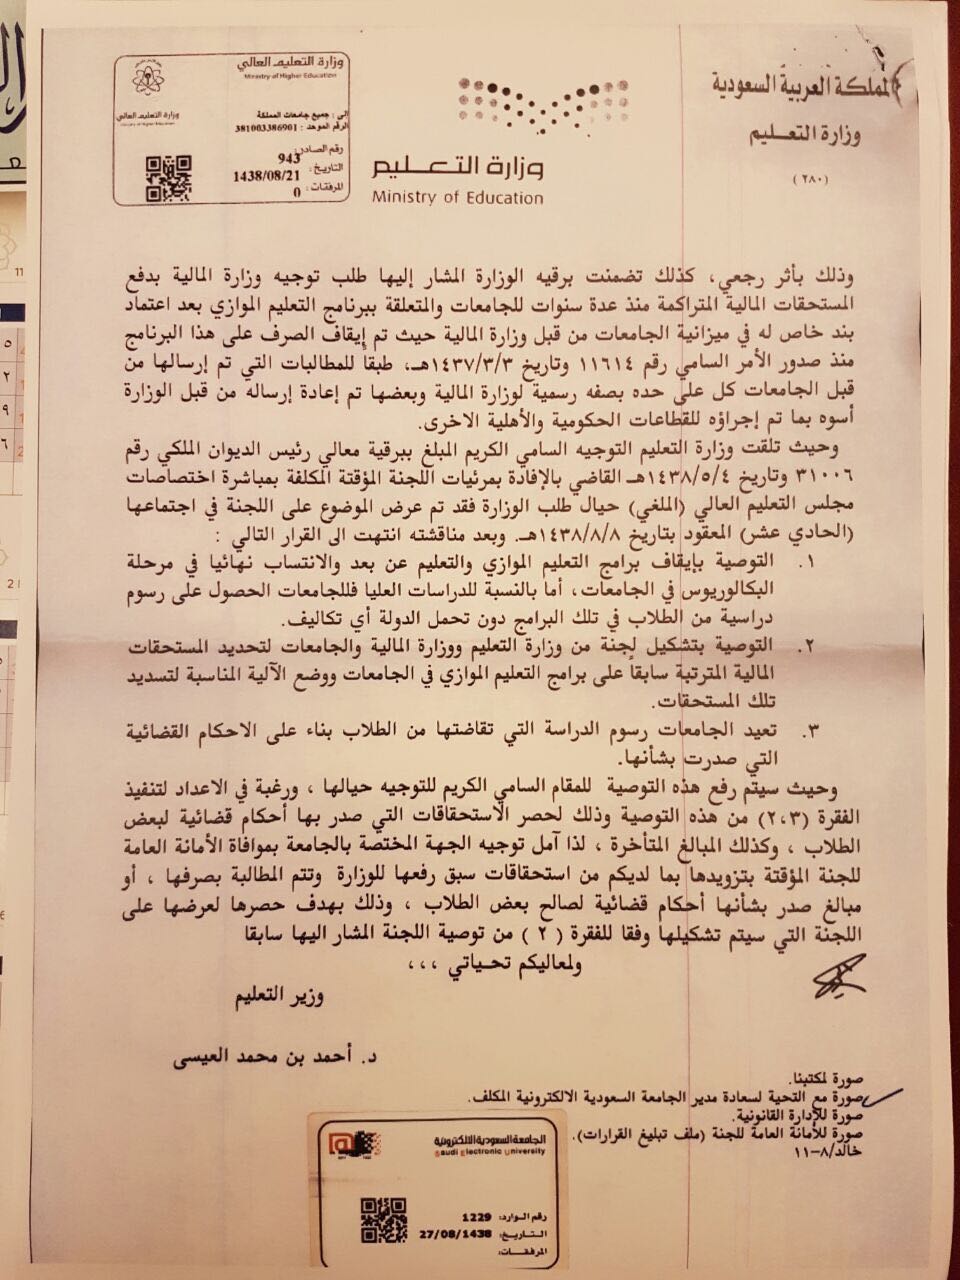 المملكة العربية السعودية
وزارة التعـليم
(٢٨٠)
وزارة التعـليم
Ministry of Education
وزارة التعليم العالي
Ministry of Higher Education
وزارة التعليم العالي
إلى : جميع جامعات المملكة
الرقم الموحد : 381003386901
رقم الصادر: 943
التاريخ: 1438/08/21
المرفقات: 0
وذلك بأثر رجعي، كذلك تضمنت برقيه الوزارة المشار إليها طلب توجيه وزارة المالية بدفع
المستحقات المالية المتراكمة منذ عدة سنوات للجامعات والمتعلقة ببرنامج التعليم الموازي بعد اعتماد
بند خاص له في ميزانية الجامعات من قبل وزارة المالية حيث تم إيقاف الصرف على هذا البرنامج
منذ صدور الأمر السامي رقم ١١٦١٤ وتاريخ ١٤٣٧/٣/٣هـ، طبقا للمطالبات التي تم إرسالها من
قبل الجامعات كل على حده بصفه رسمية لوزارة المالية وبعضها تم إعادة إرساله من قبل الوزارة
أسوه بما تم إجراؤه للقطاعات الحكومية والأهلية الاخرى.
وحيث تلقت وزارة التعليم التوجيه السامي الكريم المبلغ ببرقية معالي رئيس الديوان الملكي رقم
٣١٠٠٦ وتاريخ ١٤٣٨/٥/٤هـ القاضي بالإفادة بمرئيات اللجنة المؤقتة المكلفة بمباشرة اختصاصات
مجلس التعليم العالي (الملغي) حيال طلب الوزارة فقد تم عرض الموضوع على اللجنة في اجتماعها
(الحادي عشر) المعقود بتاريخ ١٤٣٨/٨/٨هـ. وبعد مناقشته انتهت الى القرار التالي :
١. التوصية بإيقاف برامج التعليم الموازي والتعليم عن بعد والانتساب نهائيا في مرحلة
البكالوريوس في الجامعات، أما بالنسبة للدراسات العليا فللجامعات الحصول على رسوم
دراسية من الطلاب في تلك البرامج دون تحمل الدولة أي تكاليف.
٢. التوصية بتشكيل لجنة من وزارة التعليم ووزارة المالية والجامعات لتحديد المستحقات
المالية المترتبة سابقاً على برامج التعليم الموازي في الجامعات ووضع الآلية المناسبة لتسديد
تلك المستحقات.
٣. تعيد الجامعات رسوم الدراسة التي تقاضتها من الطلاب بناء على الاحكام القضائية
التي صدرت بشأنها.
وحيث سيتم رفع هذه التوصية للمقام السامي الكريم للتوجيه حيالها ، ورغبة في الاعداد لتنفيذ
الفقرة (٢،٣) من هذه التوصية وذلك لحصر الاستحقاقات التي صدر بها أحكام قضائية لبعض
الطلاب ، وكذلك المبالغ المتأخرة ، لذا آمل توجيه الجهة المختصة بالجامعة بموافاة الأمانة العامة
للجنة المؤقتة بتزويدها بما لديكم من استحقاقات سبق رفعها للوزارة وتتم المطالبة بصرفها ، أو
مبالغ صدر بشأنها أحكام قضائية لصالح بعض الطلاب ، وذلك بهدف حصرها لعرضها على
اللجنة التي سيتم تشكيلها وفقا للفقرة ( ٢ ) من توصية اللجنة المشار اليها سابقا
ولمعاليكم تحـياتي ،،،
وزير التعليم
د. أحمد بن محمد العيسى
صورة لمكتبنا.
صورة مع التحية لسعادة مدير الجامعة السعودية الالكترونية المكلف.
صورة للإدارة القانونية.
صورة للأمانة العامة للجنة (ملف تبليغ القرارات).
خالد/٨-١١
الجامعة السعودية الالكترونية
Saudi Electronic University
رقم الوارد: 1229
التاريخ: 27/08/1438
المرفقات: